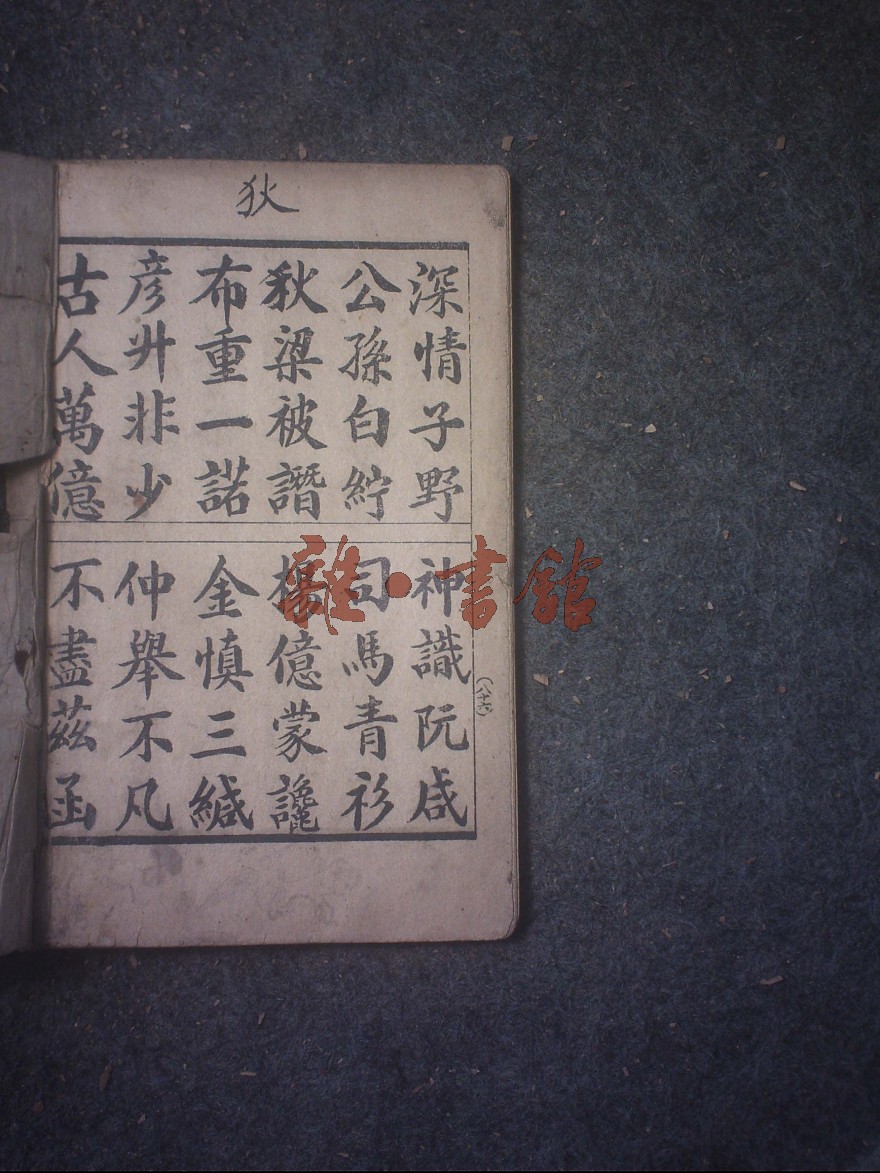 狄
深情子野 神識阮咸
公孫白紵 司馬青衫
秋梁被譖 楊億蒙讒
布重一諾 金慎三緘
彥升非少 仲舉不凡
古人萬億 不盡茲函
(八十六)
雜·書館